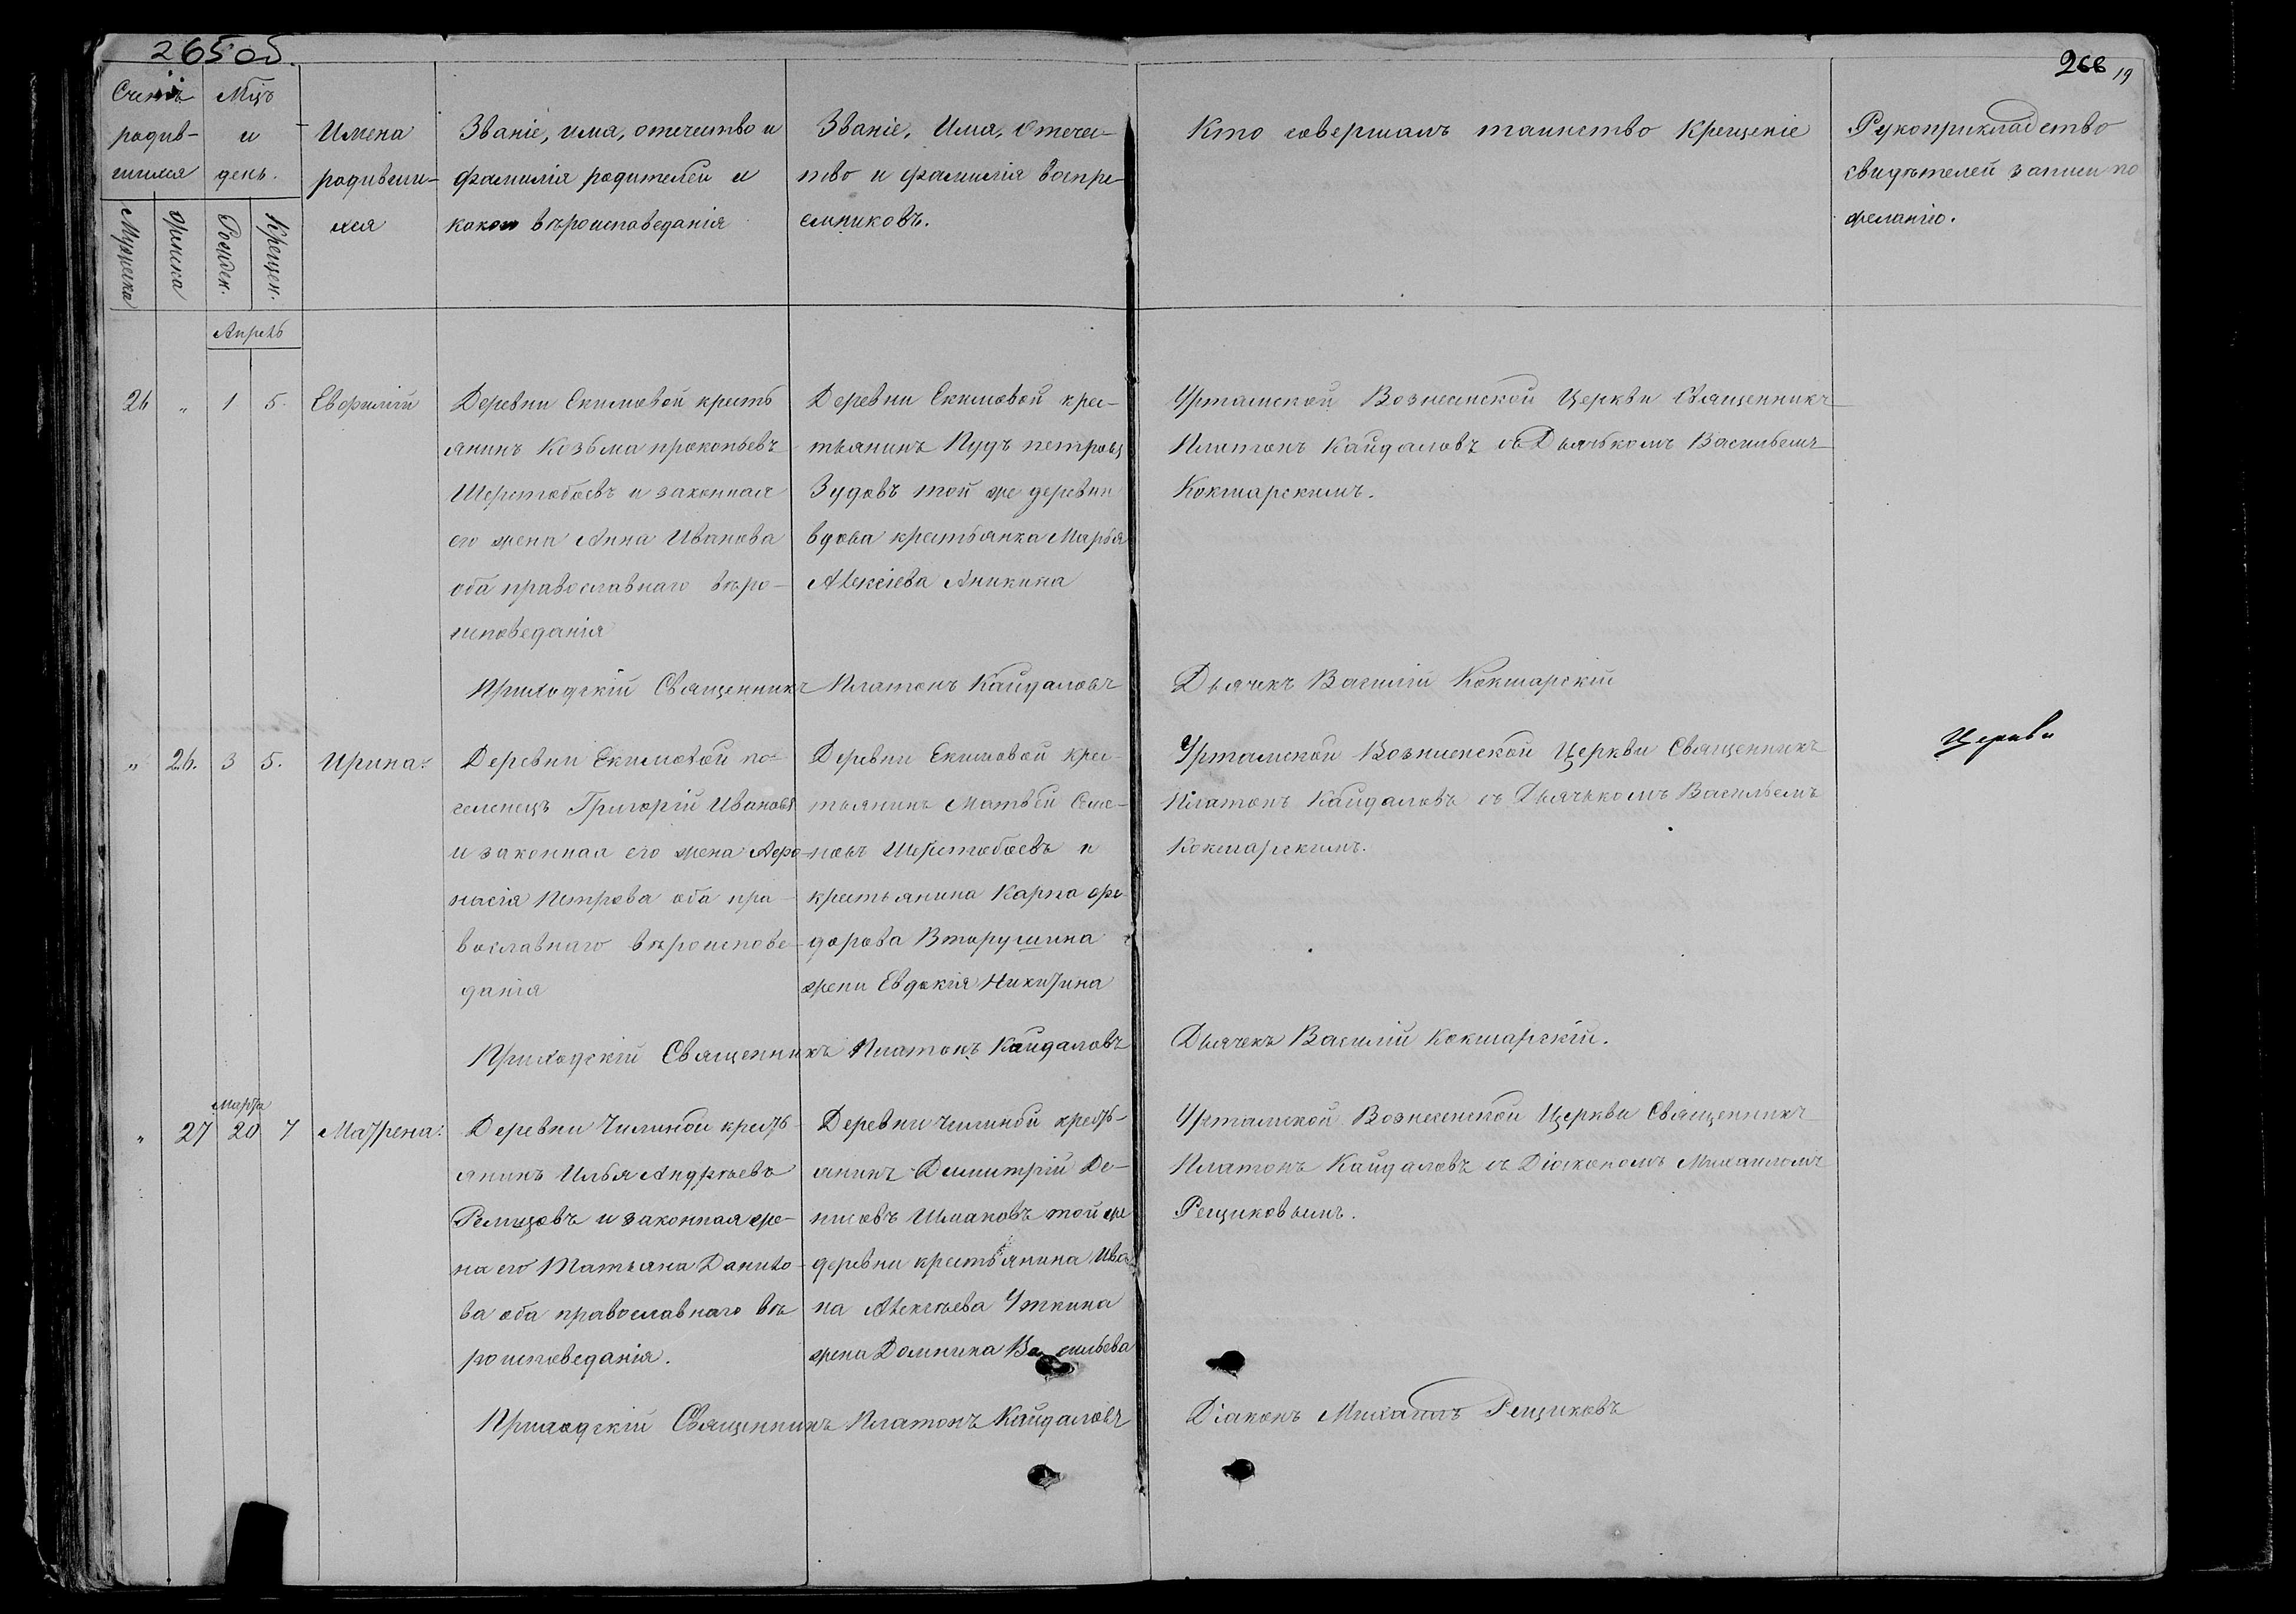 265 об.
266 19
Счетъ родив-шихся
Мцъ и день.
Мужеска
Женска
Рожден.
Крещен.
Имена
родивши-
хся
Званіе, имя, отечество и
фамилія родителей и
какого вѣроисповеданія
Званіе, Имя, отече-
тво и фамилія воспре-
емниковъ.
Кто совершалъ таинство Крещеніе
Рукоприкладство
свидѣтелей записи по
желанію.
Апрель
26 „ 1 5. Евфимій
Деревни Екимовой кресть
янинъ Козьма прокопьевъ
Шерстобоевъ и законная
его жена Анна Иванова
оба православнаго вѣро-
исповеданія
Деревни Екимовой крес-
тьянинъ Пудъ петровъ
Зудовъ той же деревни
вдова крестьянка Марья
Алексіева Аникина
Уртамской Вознесенской Церкви Священникъ
Платонъ Кайдаловъ съ Дьячкомъ Васильемъ
Кокшарскимъ.
Приходскій Священникъ Платонъ Кайдаловъ
Дьячкъ Василій Кокшарскій
„ 26. 3 5. Ирина.
Деревни Екимовой по-
селенецъ Григорій Ивановъ
и законная его жена Афо-
насія Петрова оба пра-
вославнаго вѣроисповѣ-
данія
Деревни Екимовой крес-
тьянинъ Матвей Семе-
новъ Шерстобоевъ и
крестьянина Карпа фе-
дорова Вторушина
жени Евдокія Никитина
Уртамской Вознесенской Церкви Священникъ
Платонъ Кайдаловъ съ Дьячькомъ Васильемъ
Кокшарскимъ.
Церкви
Приходскій Священникъ Платонъ Кайдаловъ
Дьячекъ Василій Кокшарскій.
марта
„ 27 20 7 Матрена.
Деревни Чилиной кресть-
янинъ Илья Андрѣевъ
Ремизовъ и законная же-
на его Татьяна Данило-
ва оба православнаго вѣ
роисповеданія.
Деревни Чилиной кресть-
янинъ Димитрій Де-
нисовъ Шмаковъ той же
деревни крестьянина Ива
на Алексѣева Уткина
жена Домнина Васильева
Уртамской Вознесенской Церкви Священникъ
Платонъ Кайдаловъ съ Діакономъ Михаиломъ
Рещиковымъ.
Приходскій Священникъ Платонъ Кайдаловъ
Діаконъ Михаилъ Рещиковъ